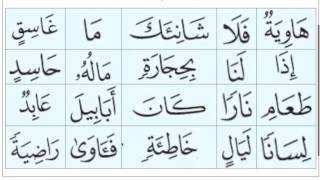 هَاوِيَةٌ فَلَا شَانِئَكَ مَا غَاسِقٍ
إِذَا لَنَا بِحِجَارَةٍ مَالُهُ حَاسِدٍ
طَعَامِ نَارًا كَانَ أَبَابِيلَ عَابِدٌ
لِسَانًا لَيَالٍ خَاطِئَةٍ فَـَٔاوَىٰ رَاضِيَةً